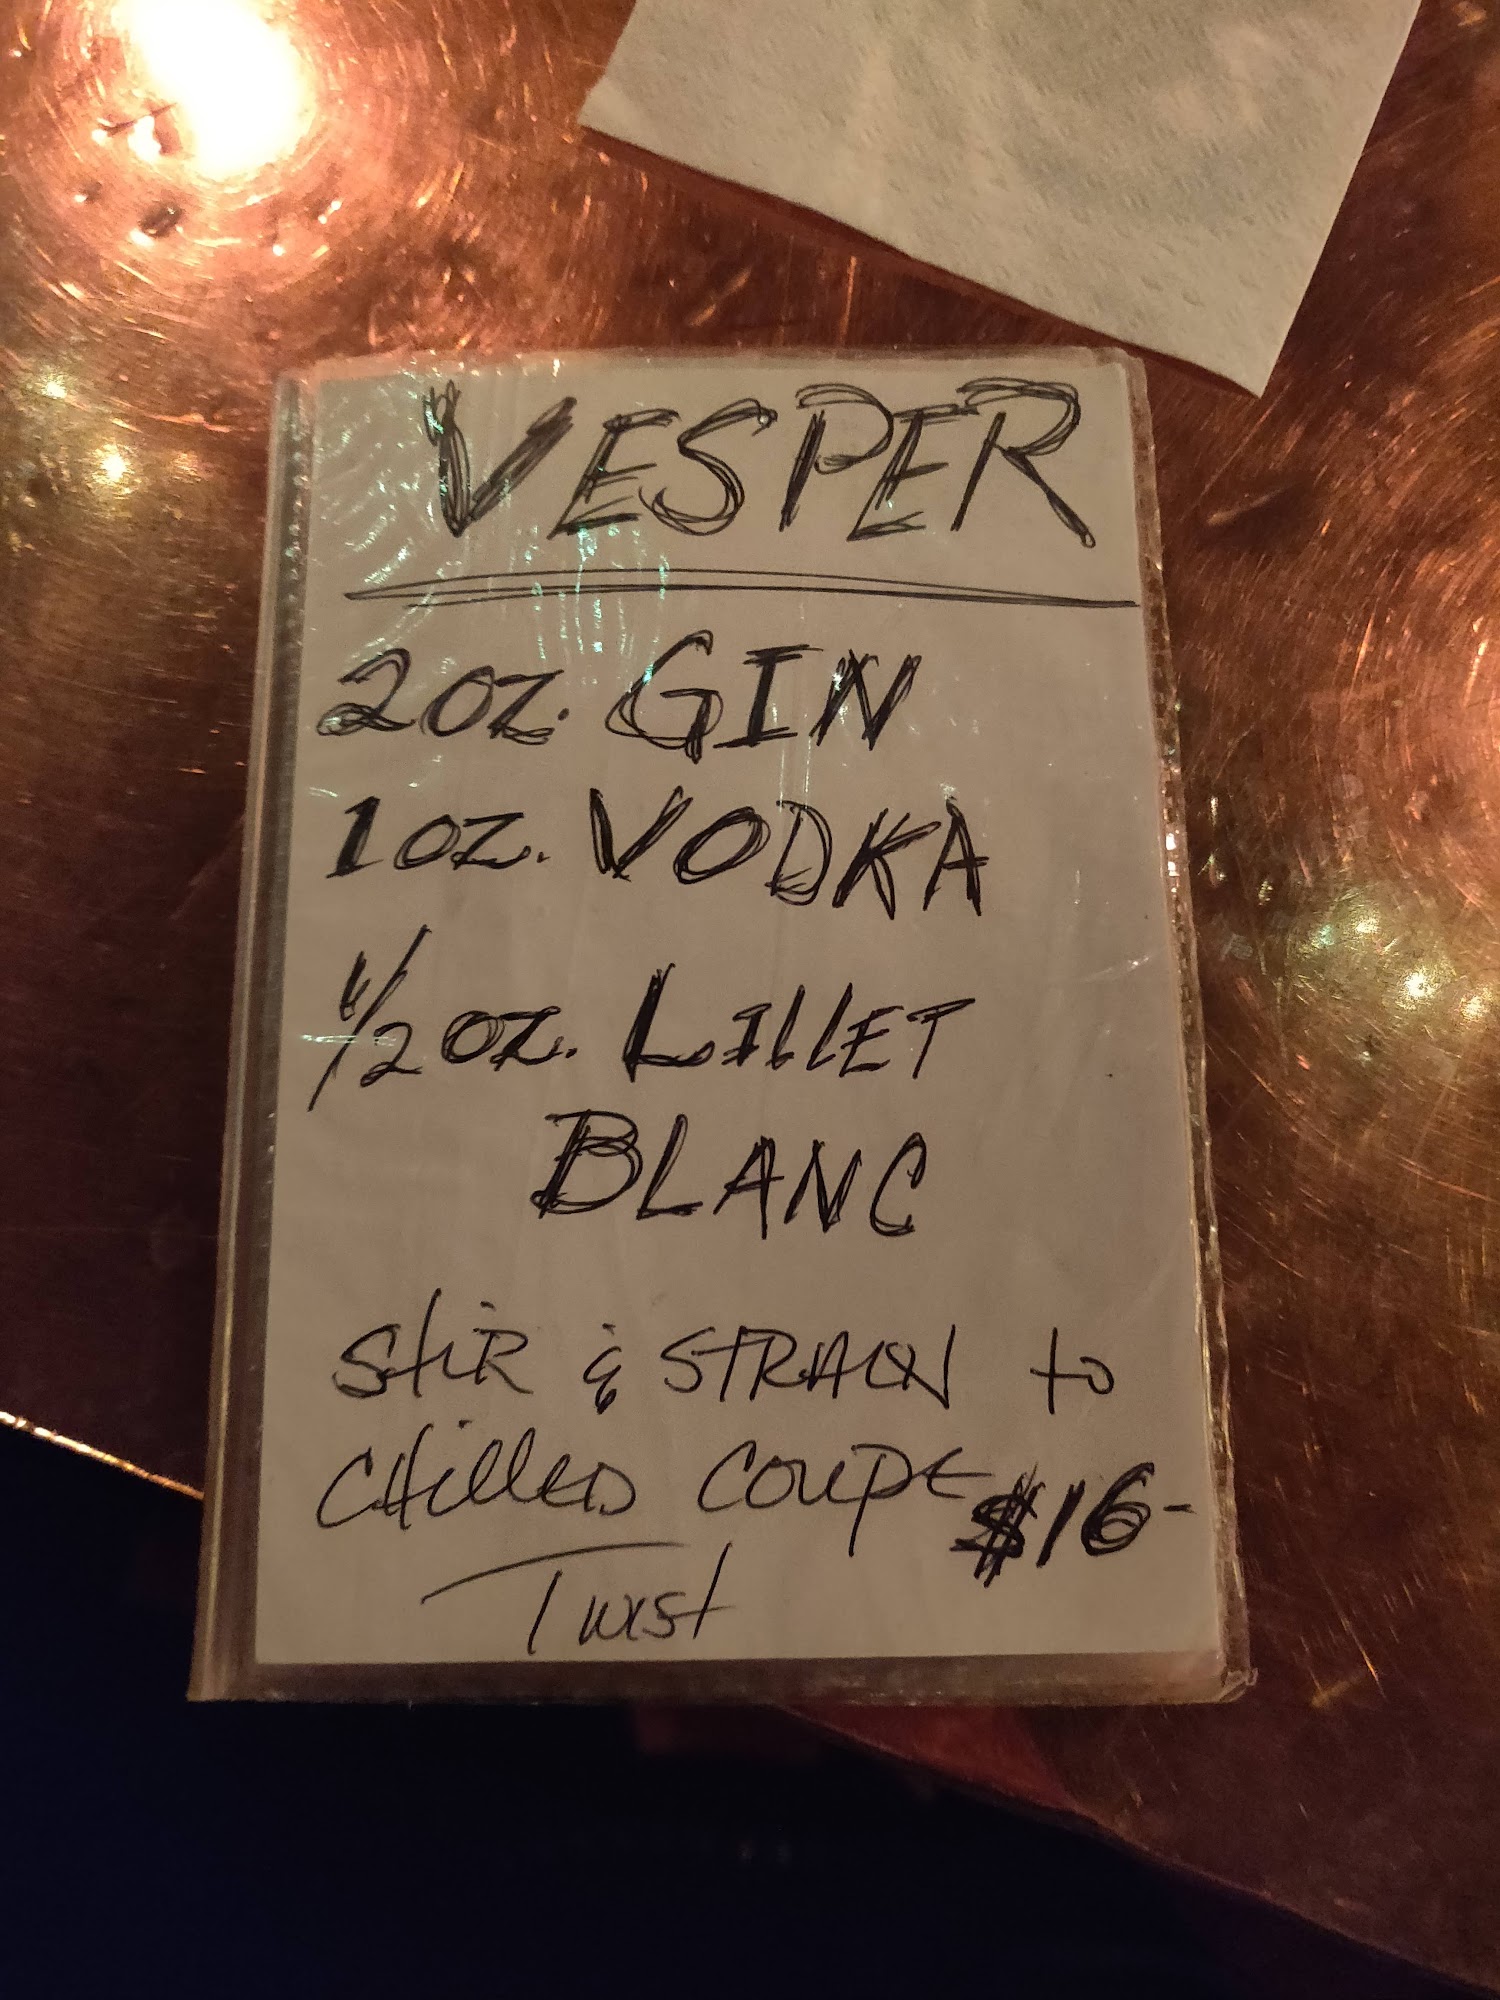 VESPER
2 oz. GIN
1 oz. VODKA
1/2 oz. LILLET
BLANC
Stir & STRAIN to
CHilled COUPE $16-
Twist